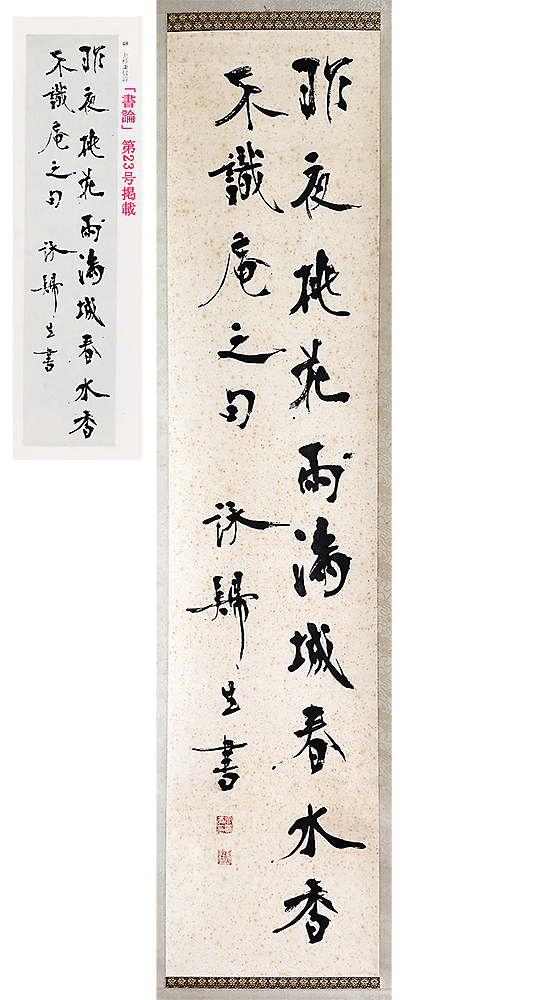 「書論」第23号掲載
48 上杉謙信詩
昨夜桃花雨滿城春水香
不識庵之句 詠歸生書
昨夜桃花雨滿城春水香
不識庵之句 詠歸生書